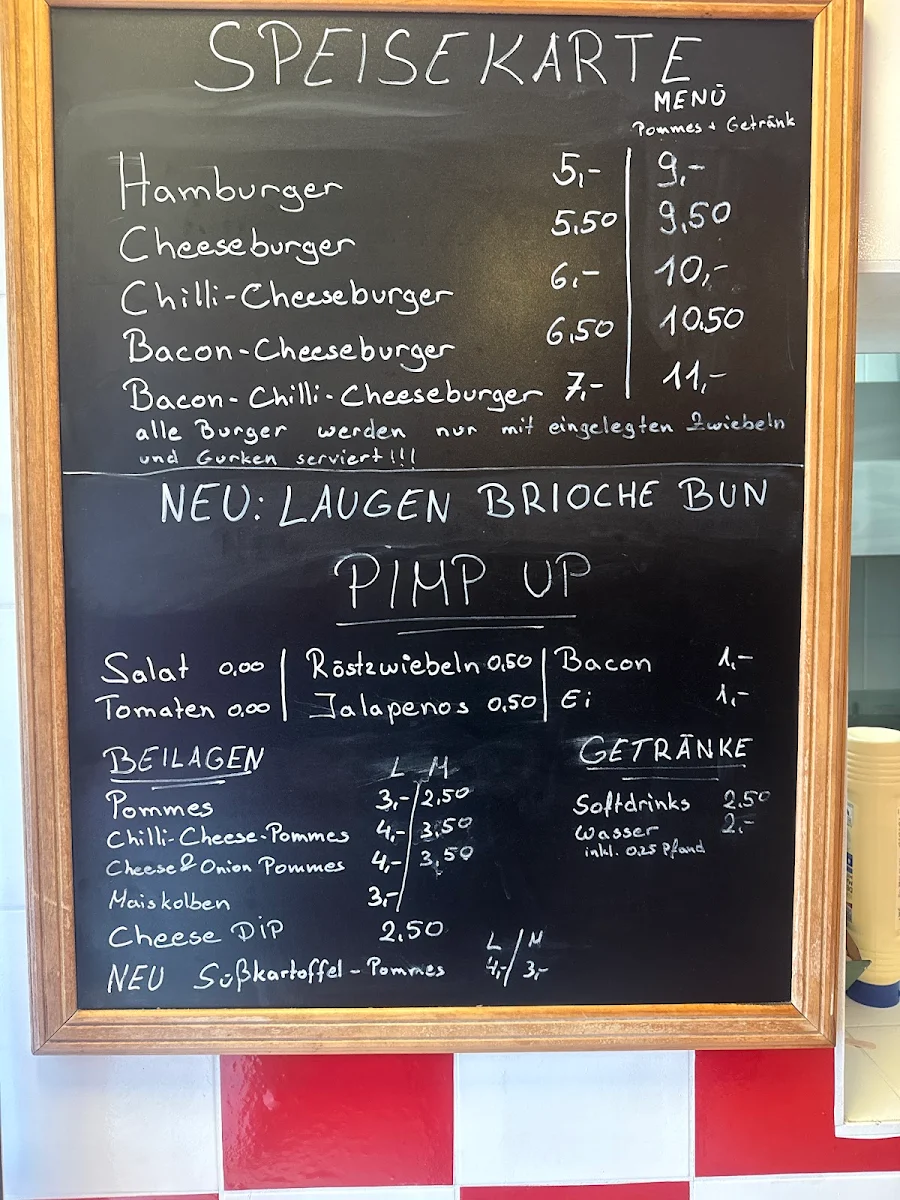 SPEISEKARTE
MENÜ
Pommes + Getränk
Hamburger 5,- 9,-
Cheeseburger 5,50 9,50
Chilli-Cheeseburger 6,- 10,-
Bacon-Cheeseburger 6,50 10,50
Bacon-Chilli-Cheeseburger 7,- 11,-
alle Burger werden nur mit eingelegten Zwiebeln
und Gurken serviert!!!
NEU: LAUGEN BRIOCHE BUN
PIMP UP
Salat 0,00 Röstzwiebeln 0,50 Bacon 1,-
Tomaten 0,00 Jalapenos 0,50 Ei 1,-
BEILAGEN L M
Pommes 3,- 2,50
Chilli-Cheese-Pommes 4,- 3,50
Cheese & Onion Pommes 4,- 3,50
Maiskolben 3,-
Cheese DiP 2,50
L / M
NEU Süßkartoffel-Pommes 4,- / 3,-
GETRÄNKE
Softdrinks 2,50
Wasser 2,-
inkl. 0,25 Pfand